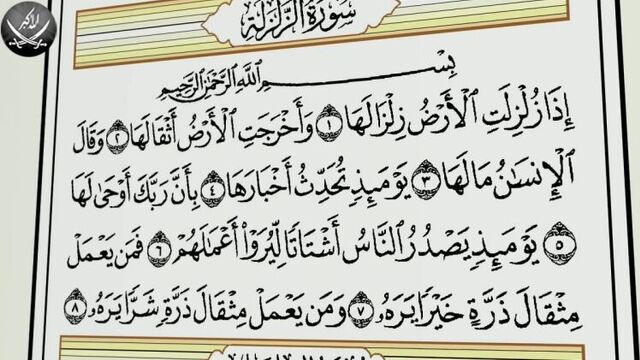 الله أكبر
سُورَةُ الزَّلْزَلَةِ
بِسْمِ اللَّهِ الرَّحْمَٰنِ الرَّحِيمِ
إِذَا زُلْزِلَتِ الْأَرْضُ زِلْزَالَهَا ١ وَأَخْرَجَتِ الْأَرْضُ أَثْقَالَهَا ٢ وَقَالَ
الْإِنسَٰنُ مَا لَهَا ٣ يَوْمَئِذٍ تُحَدِّثُ أَخْبَارَهَا ٤ بِأَنَّ رَبَّكَ أَوْحَىٰ لَهَا
٥ يَوْمَئِذٍ يَصْدُرُ النَّاسُ أَشْتَاتًا لِّيُرَوْا أَعْمَٰلَهُمْ ٦ فَمَن يَعْمَلْ
مِثْقَالَ ذَرَّةٍ خَيْرًا يَرَهُۥ ٧ وَمَن يَعْمَلْ مِثْقَالَ ذَرَّةٍ شَرًّا يَرَهُۥ ٨